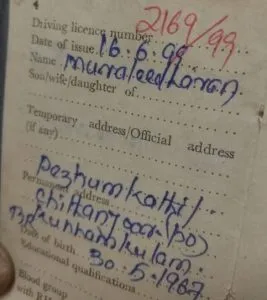 4
Driving licence number 2169/99
Date of issue 16.6.99
Name muraleedharan
Son/wife/daughter of
Temporary address/Official address
(if any)
Pezhumkattil
Permanent address
chittanjoor (po)
kunnamkulam.
Date of birth 30.5.1967
Educational qualifications
Blood group
with R